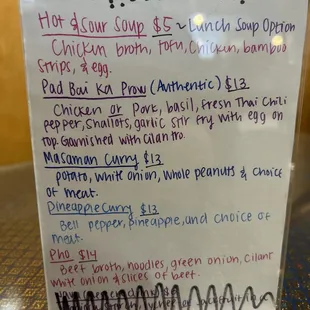 Hot & Sour Soup $5 ~ Lunch Soup Option
Chicken broth, tofu, Chicken, bamboo
strips, & egg.
Pad Bai Ka Prow (Authentic) $13
Chicken or Pork, basil, fresh Thai Chili
pepper, Shallots, garlic stir fry with egg on
top. Garnished with Cilantro.
Masaman Curry $13
potato, white onion, whole peanuts & choice
of meat.
Pineapple Curry $13
Bell pepper, pineapple, and choice of
meat.
Pho $14
Beef broth, noodles, green onion, Cilant
white onion & slices of beef.